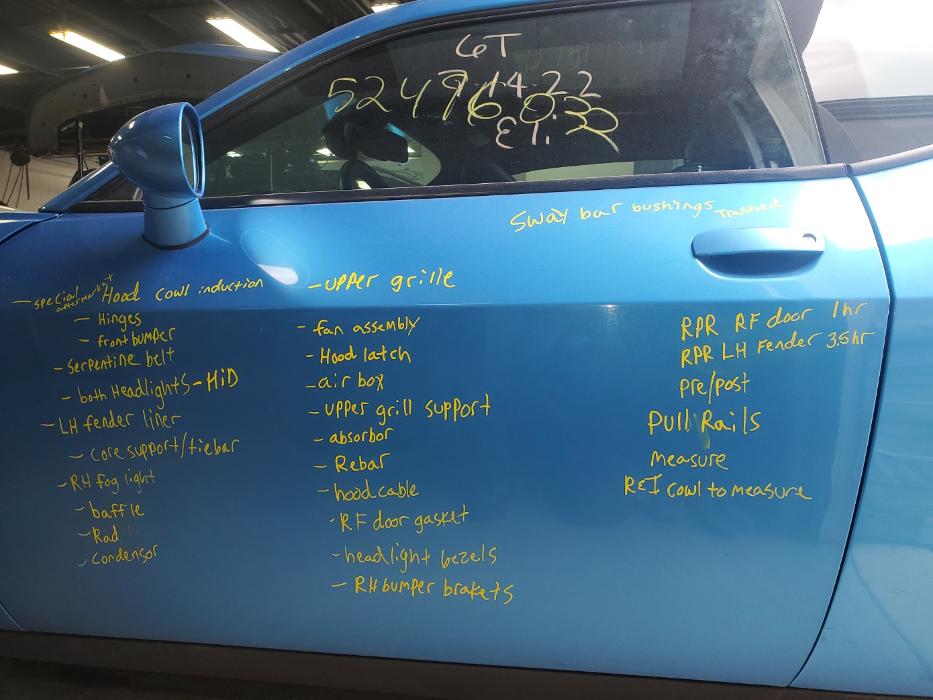 GT
Eli
Sway bar bushings Trashed
- special aftermarkt Hood cowl induction
- Hinges
- front bumper
- Serpentine belt
- both Headlights - HiD
- LH fender liner
- core support/tiebar
- RH fog light
- baffle
- Rad
- condensor
- upper grille
- fan assembly
- Hood latch
- air box
- upper grill support
- absorbor
- Rebar
- hood cable
- RF door gasket
- headlight bezels
- RH bumper brakets
RPR RF door 1hr
RPR LH Fender 3.5hr
pre/post
Pull Rails
measure
R&I cowl to measure